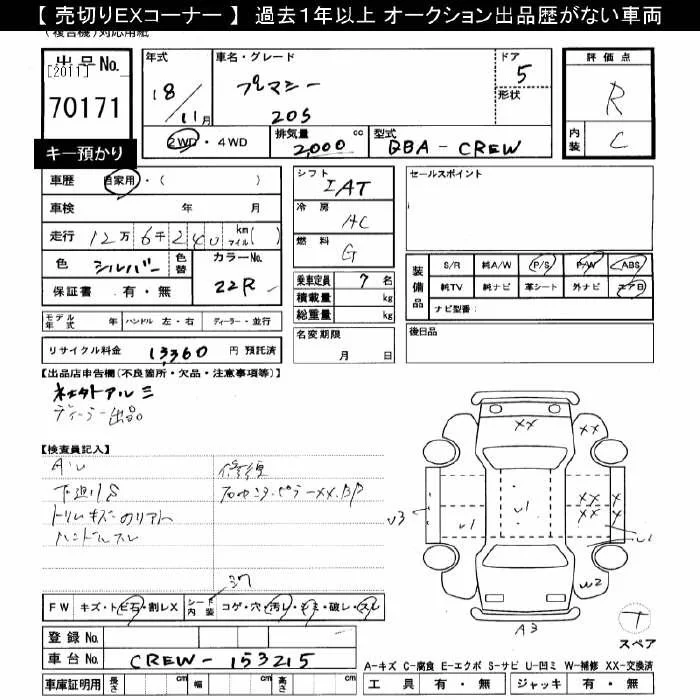 【 売切りEXコーナー 】 過去１年以上 オークション出品歴がない車両
(複合機)対応用紙
出品No.
[2011]
70171
キー預かり
年式
18/11月
車名・グレード
プレマシー
20S
ドア
5
形状
評価点
R
内装
C
2WD・4WD
排気量
2,000 cc
型式
DBA-CREW
車歴 自家用・( )
車検 年 月
走行 12万6千240 km マイル( )
色 シルバー 色替 カラーNo. 22R
保証書 有・無
モデル年式 年 ハンドル 左・右 ディーラー・並行
リサイクル料金 13,360 円 預託済
シフト
IAT
冷房
AC
燃料
G
乗車定員 7 名
積載量 kg
総重量 kg
名変期限
月 日
セールスポイント
装備品
S/R 純A/W P/S P/W ABS
純TV 純ナビ 革シート 外ナビ エアB
ナビ型番:
後日品
【出品店申告欄(不良箇所・欠品・注意事項等)】
ディーラー出品
【検査員記入】
A・U 修復
下廻りS
トリムキズ
ハンドルスレ
FW キズ・トビ石・割レX シート内装 コゲ・穴・汚レ・シミ・破レ・スレ
登録No.
車台No. CREW-153215
車庫証明用 長さ cm 幅 cm 高さ cm
XX
XX
U3
U1
U1
XX XX
XX XX
U1
W2
A3
T
スペア
A-キズ C-腐食 E-エクボ S-サビ U-凹ミ W-補修 XX-交換済
工具 有・無 ジャッキ 有・無